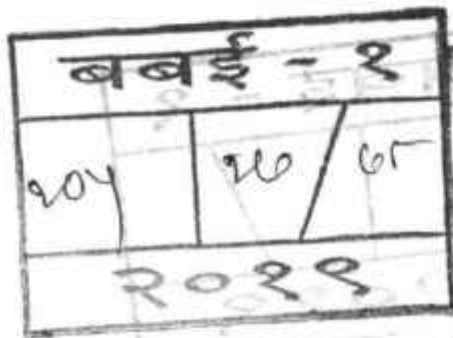 बबई - १
१०५ १७ / ७८
२०१९